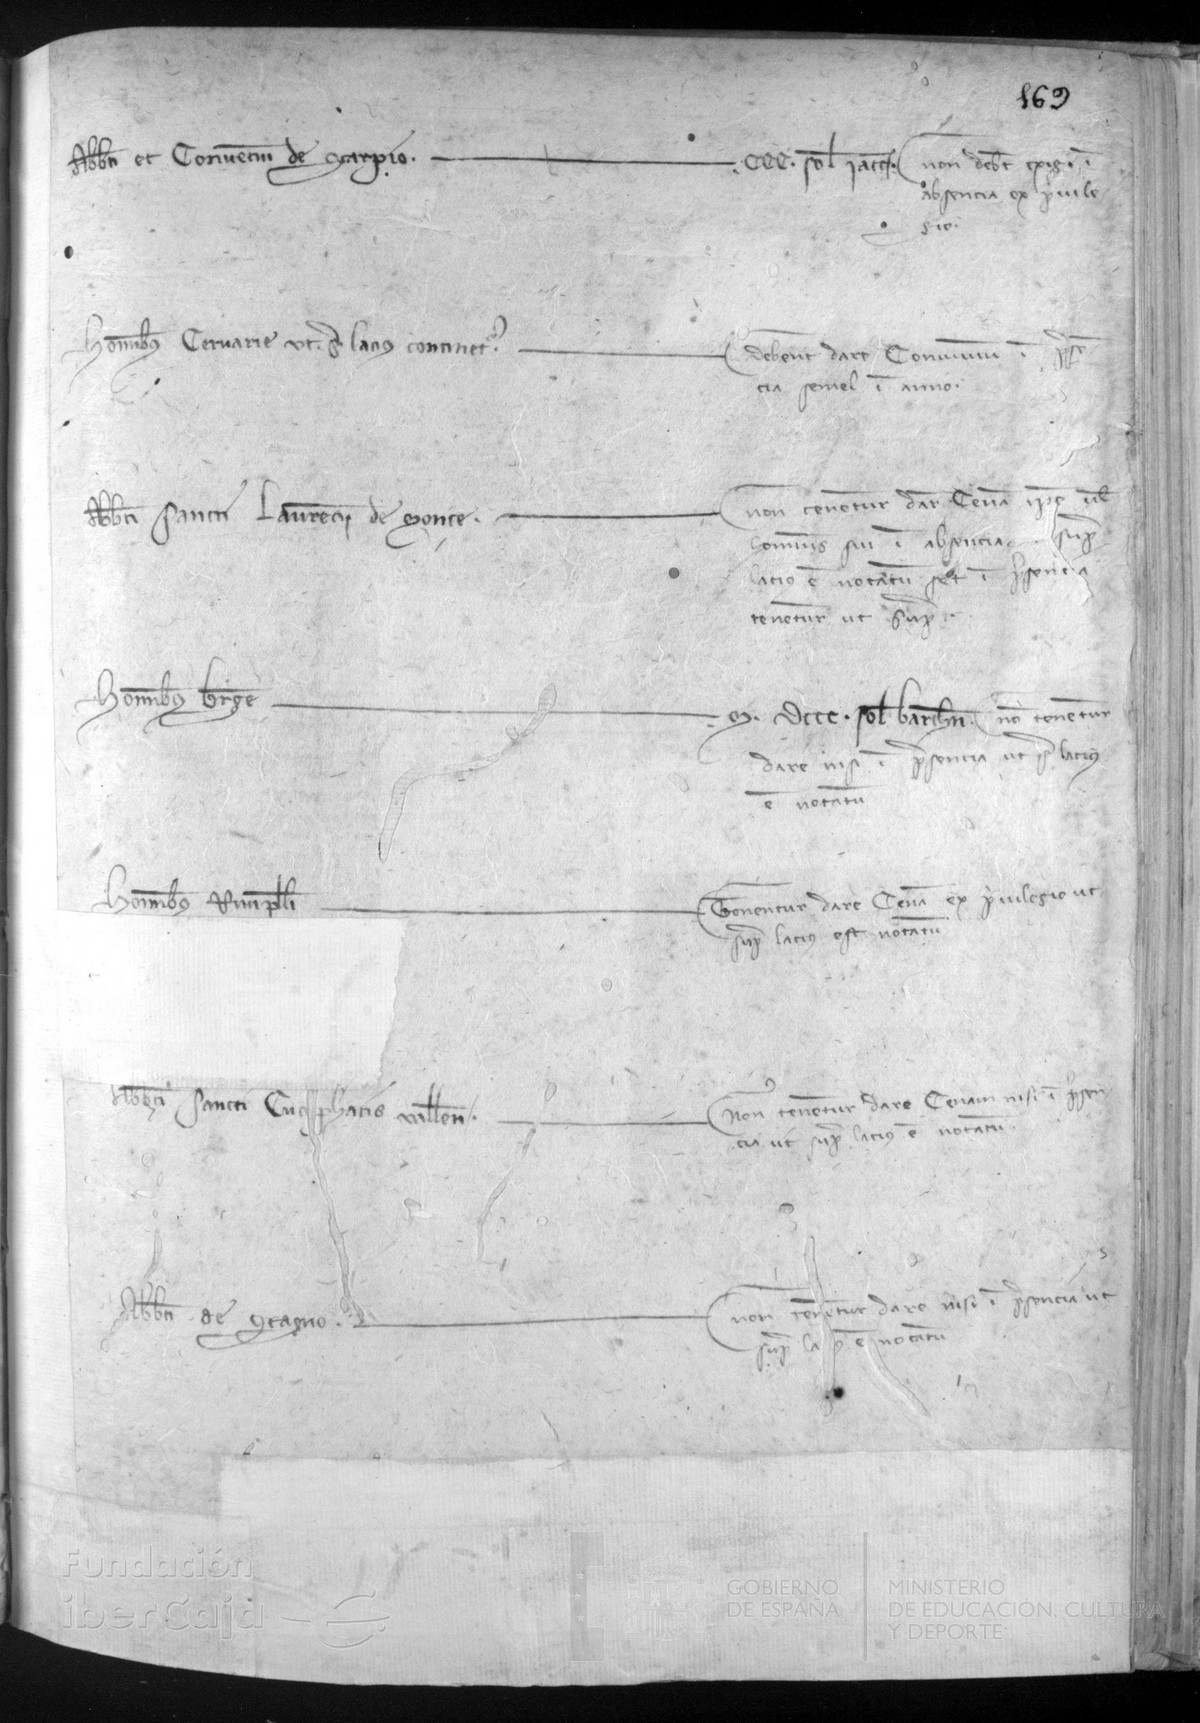 169
Abbati et Conventui de Scarpio. CCC. sol Iacc. non debet exigi i
absencia ex privile
gio.
Hominibus Cervarie ut s lacius continetur. debent dare Convivium i pre
cia semel i anno.
Abbati Sancti Laurencii de Monte. non tenetur dar Cena ipse vel
homines sui i absencia supra
lacius e notatum set i presencia
tenetur ut supra.
Hominibus Berge M. DCCC. sol barchn. no tenentur
dare nisi i presencia ut s lacius
e notatum
Hominibus Rivipolli Tenentur dare Cena ex privilegio ut
supra lacius est notatum
Abbati Sancti Cucuphatis vallen. Non tenetur dare Cenam nisi i presen
cia ut supra lacius e notatum.
Abbati de Stagno. non tenetur dare nisi i presencia ut
supra e notatum
Fundación
iberCaja
GOBIERNO
DE ESPAÑA
MINISTERIO
DE EDUCACIÓN, CULTURA
Y DEPORTE